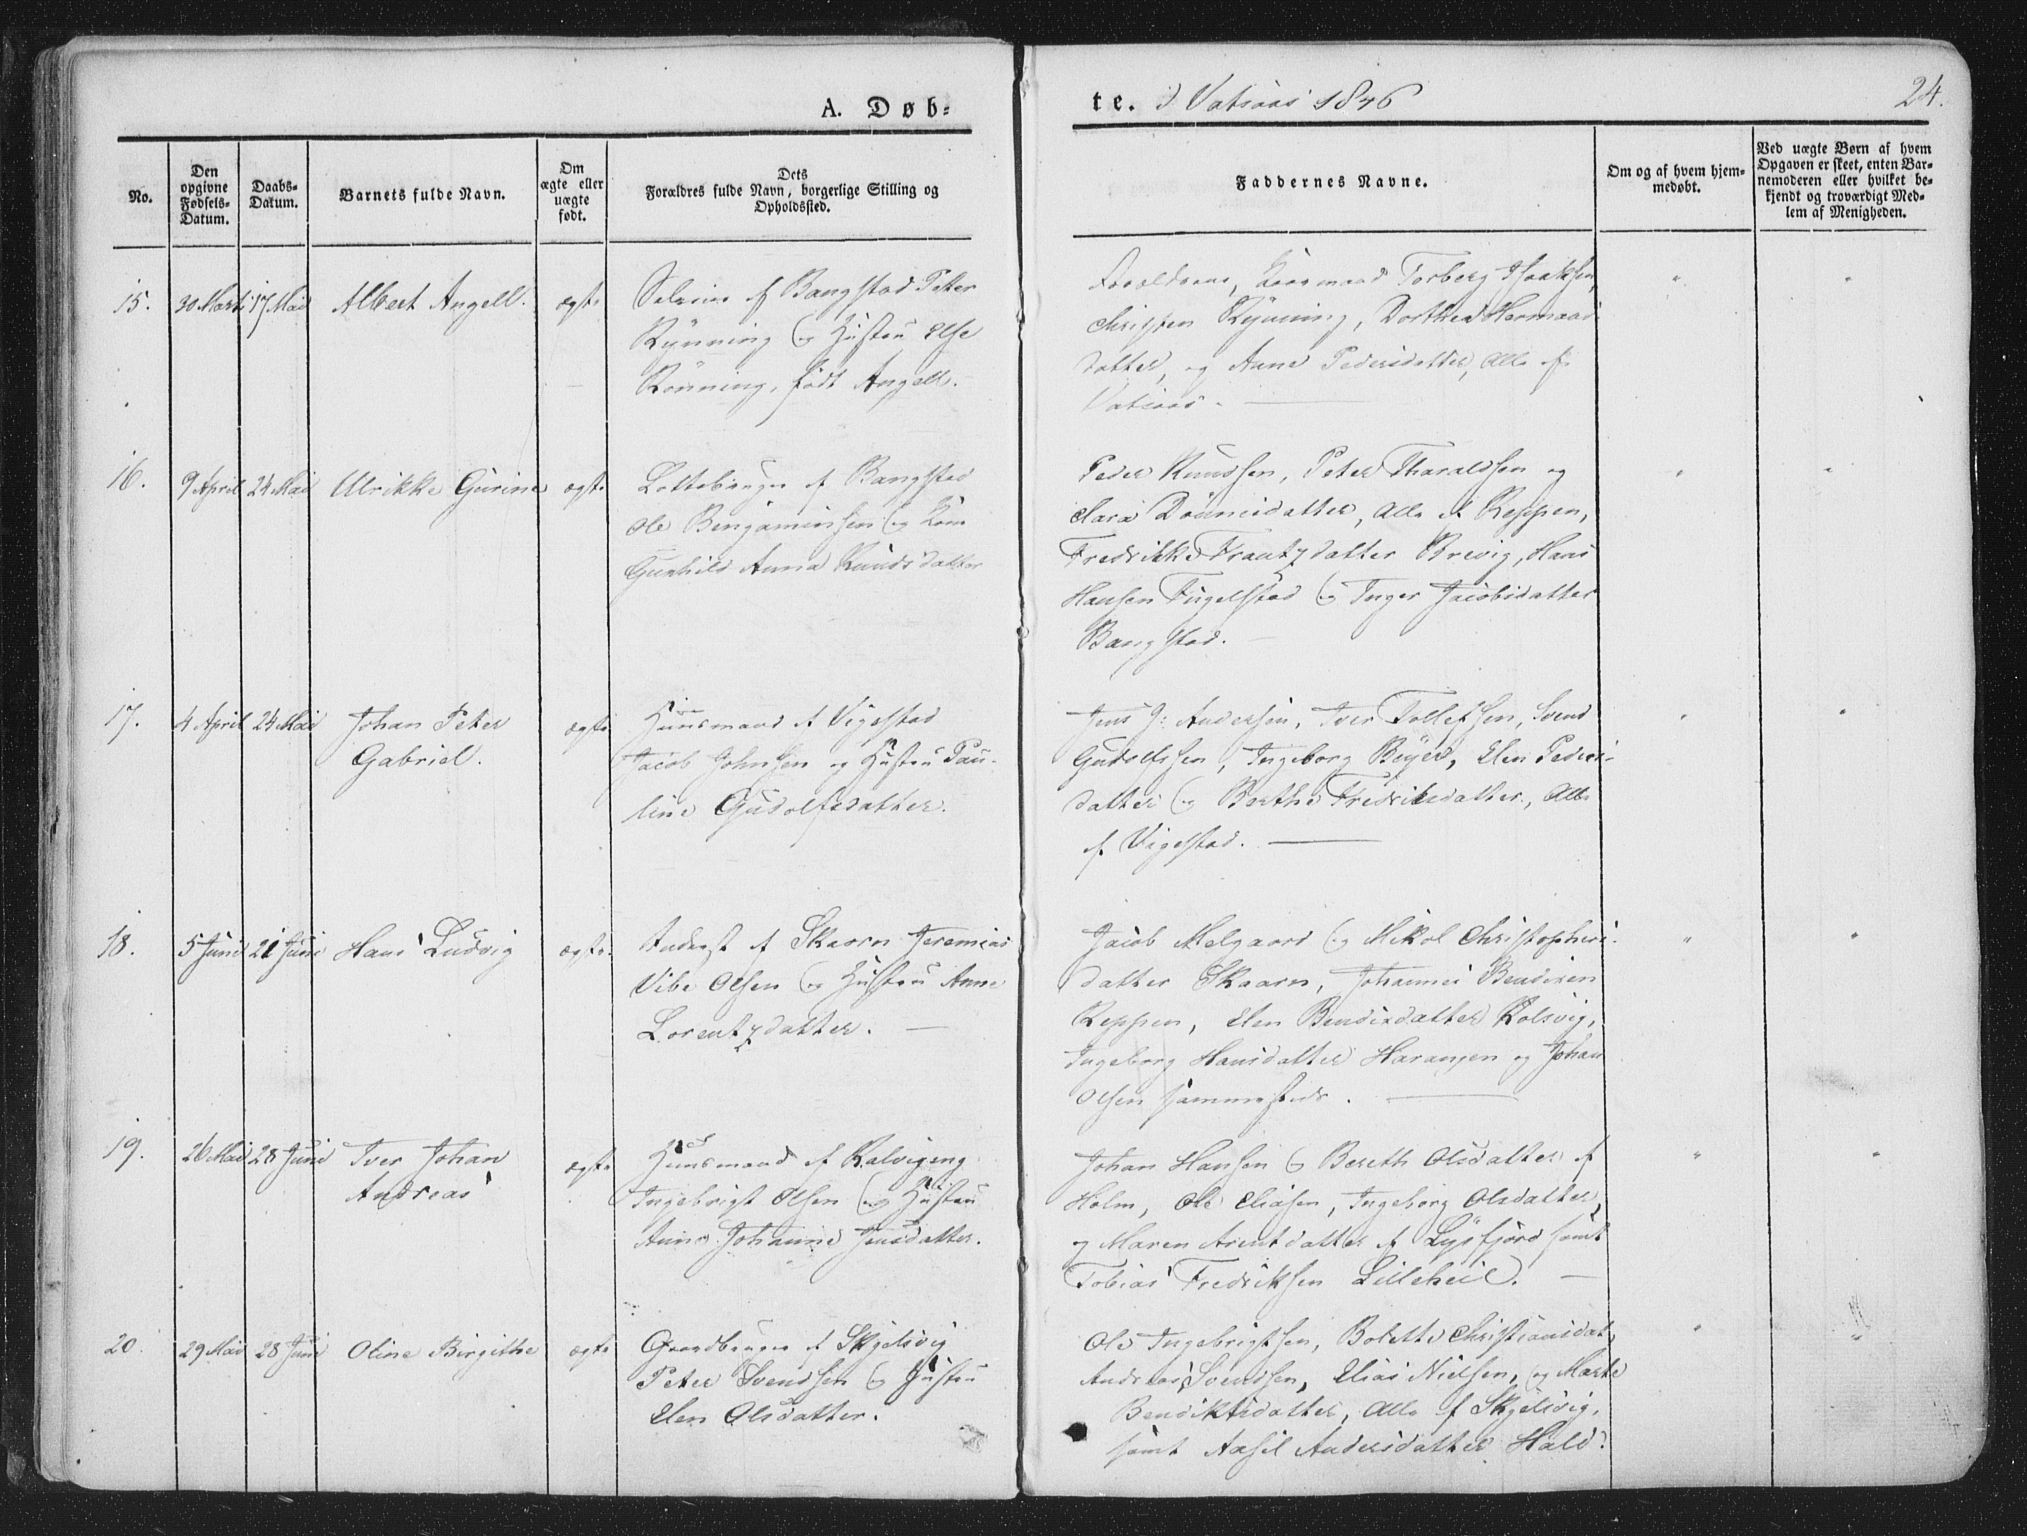 A. Døb-
te. i Vatsaas 1846
24.
No.
Den opgivne Fødsels-Datum.
Daabs-Datum.
Barnets fulde Navn.
Om ægte eller uægte født.
Dets Forældres fulde Navn, borgerlige Stilling og Opholdssted.
Faddernes Navne.
Om og af hvem hjem-medøbt.
Ved uægte Børn af hvem Opgaven er skeet, enten Bar-nemoderen eller hvilket be-kjendt og troværdigt Med-lem af Menigheden.
15. 30 Marts 17 Mai Albert Angell. ægte
af Bangstad Peter
Rynning og Hustru Else
Rønning, født Angell.
Forældrene, Torberg Isaaksen,
Christen Rynning, Dorthea
datter, og Anne Pedersdatter, Alle af
Vatsaas.
16. 9 April 24 Mai Ulrikke Gurine ægte
af Bangstad
Ole Benjaminsen og Kone
Gunhild Anna Knudsdatter
Peder Knudsen, Peter Tharaldsen og
Sara Dønnesdatter, Alle af Reppen,
Fredrikke Frantzdatter Brevig, Hans
Hansen Fugelstad og Inger Jacobsdatter
Bangstad.
17. 4 April 24 Mai Johan Peter
Gabriel.
ægte
Huusmand af Vigestad
Jacob Johnsen og Hustru Pau-
line Gudolfsdatter.
Jens J: Andersen, Iver Tollefsen, Svend
Gudolfsen, Ingeborg Beyer, Elen Peders-
datter og Berthe Fredriksdatter, Alle
af Vigestad.
18. 5 Juni 21 Juni Hans Ludvig ægte
af Skaarn Jeremias
Vibe Olsen og Hustru Anne
Lorentzdatter.
Jacob Melgaard og Mikol Christophers-
datter Skaarn, Johannes Bendixen
Reppen, Elen Bendixdatter Kolsvig,
Ingeborg Hansdatter Harangen og Johan
Olsen sammesteds.
19. 26 Mai 28 Juni Iver Johan
Andreas
ægte
Huusmand af Kalvigeng
Ingebrigt Olsen og Hustru
Anne Johanne Jensdatter.
Johan Hansen og Bereth Olsdatter af
Holm, Ole Eliasen, Ingeborg Olsdatter,
og Maren Arentdatter af Lysfjord samt
Tobias Fredriksen Lilleheil.
20. 29 Mai 28 Juni Oline Birgithe ægte
Gaardbruger af Skjelsvig
Peter Svendsen og Hustru
Elen Olsdatter.
Ole Ingebrigtsen, Bolette Christiansdat,
Andreas Svendsen, Elias Nielsen, og Marte
Bendiktsdatter, Alle af Skjelsvig,
samt Axsil Andersdatter Hald.